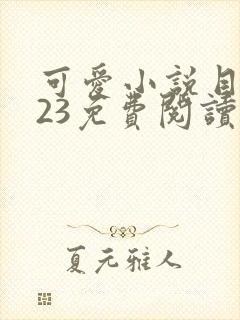 可愛小說目
23免費閱讀
夏元雅人